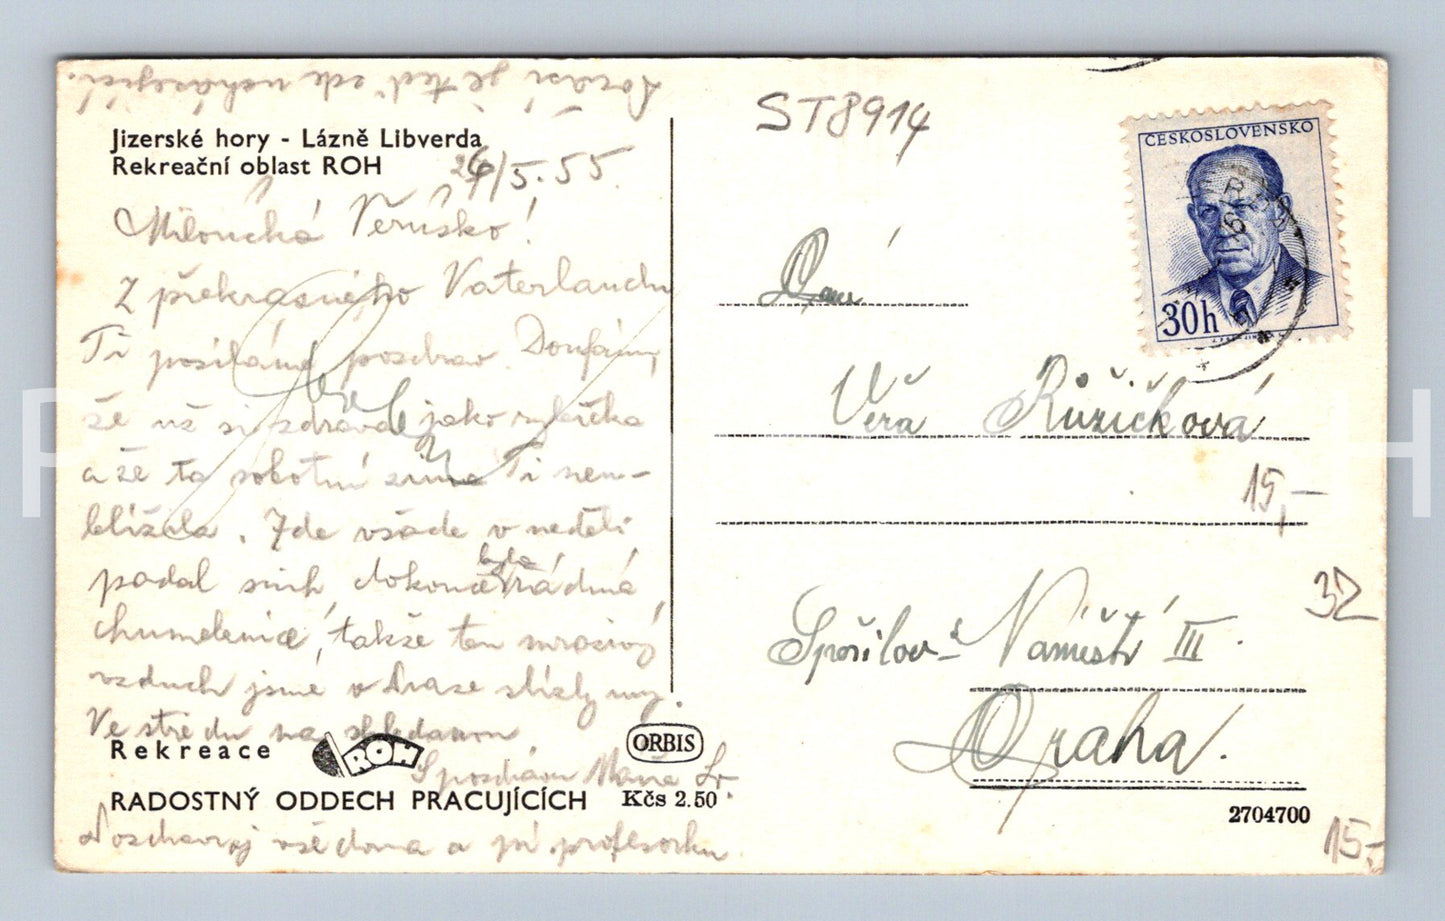 Jizerské hory - Lázně Libverda
Rekreační oblast ROH
24/5. 55.
Miloučká Věruško!
Z překrásného Vaterlandu
Ti posílám pozdrav. Doufám,
že už si zdráva jako rybička
a že ta sobotní zima Ti neu-
blížila. Zde všude v neděli
padal sníh, dokonce byla řádná
chumelenice, takže ten mrazivý
vzduch jsme v Praze slízly my.
Ve středu na shledanou
S pozdravem
Pozdravuj vše doma a profesorku
ROH
Rekreace
RADOSTNÝ ODDECH PRACUJÍCÍCH
ORBIS
Kčs 2.50
ST8914
ČESKOSLOVENSKO
30h
Věra Růžičková
15,-
32
Spořilov - Náměstí III.
Praha.
2704700
15,-